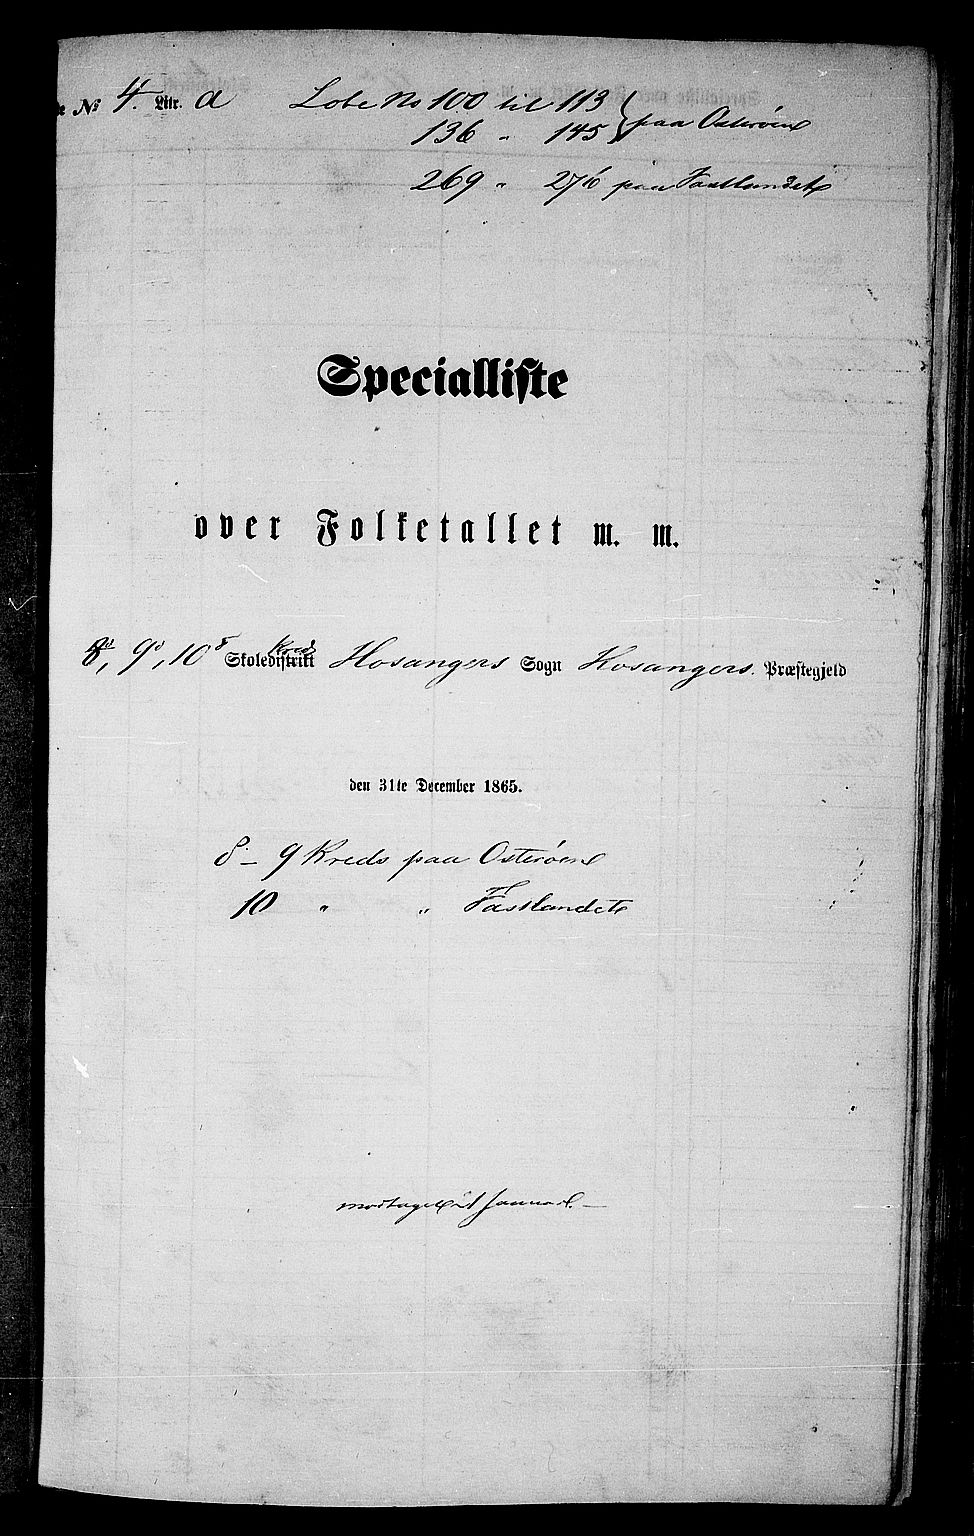 e No 4. Litr. a Løbe No 100 til 113 } paa Osterøen
136 " 145
269 " 276 paa Fastlandet
Specialliste
over Folketallet m. m.
8de, 9de, 10de Skoledistrikt Kreds Hosangers Sogn Hosangers. Præstegjeld
den 31te December 1865.
8 – 9 Kreds paa Osterøen
10 " " Fastlandet
modtaget Januar. –